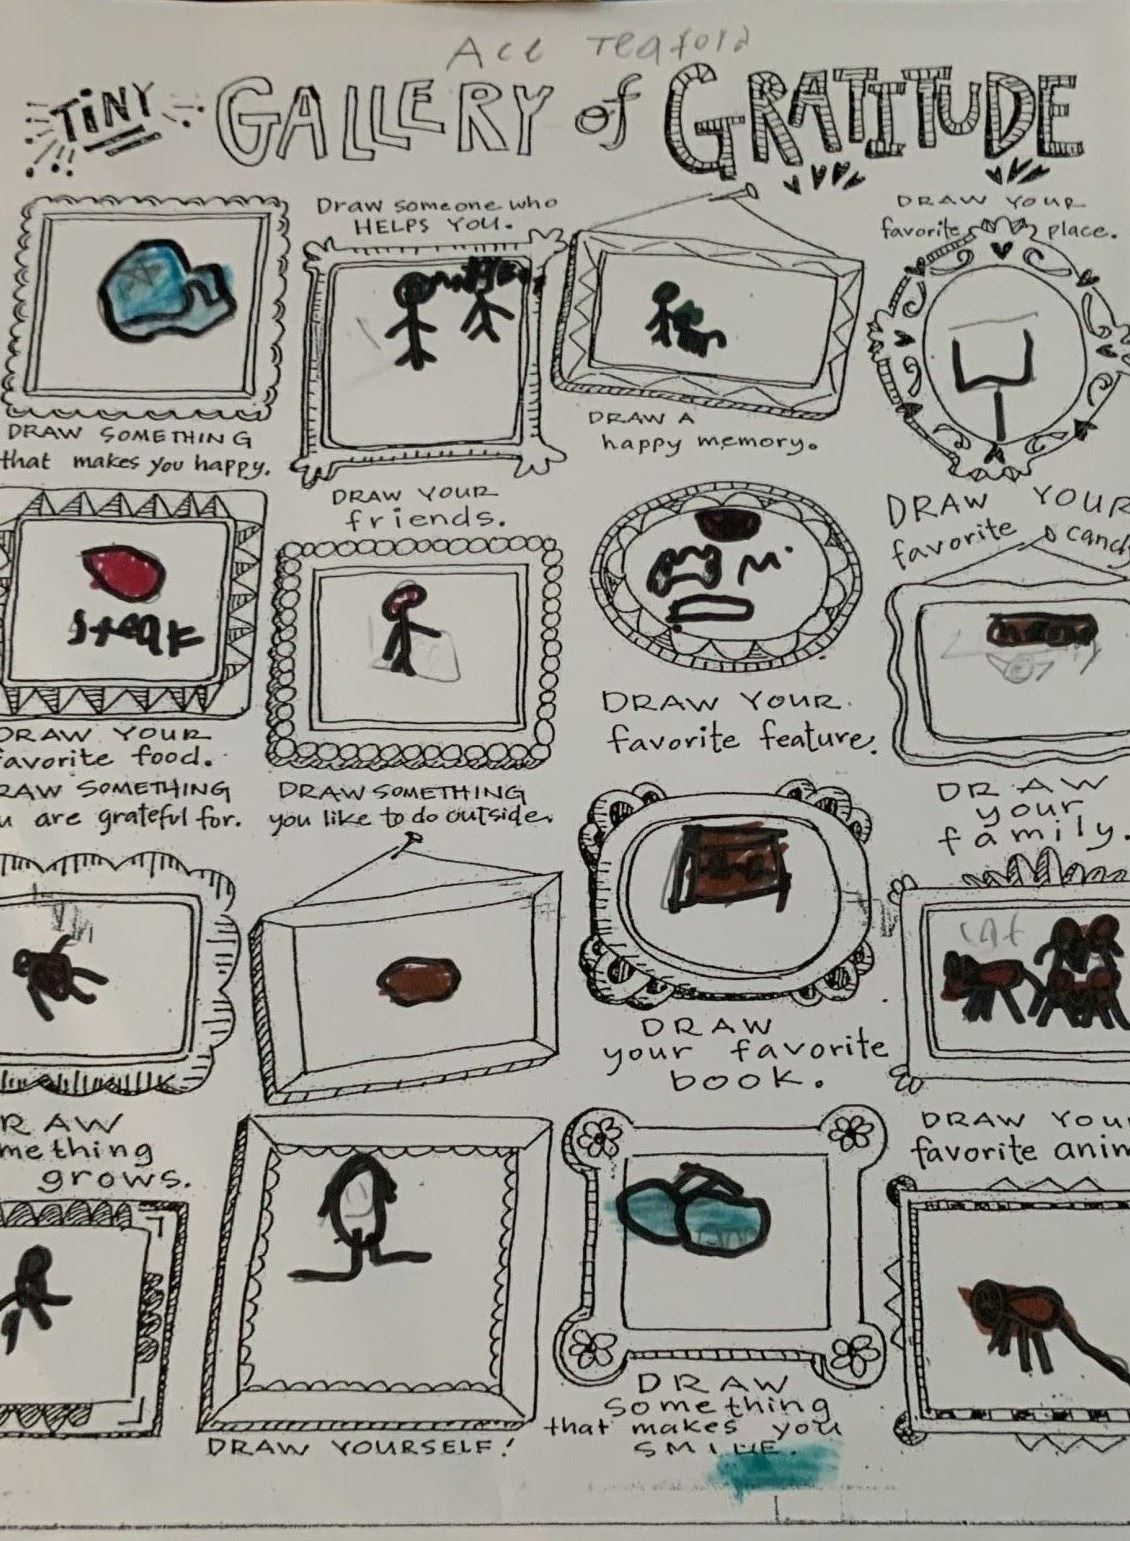 Ace Teafold
TiNY GALLERY of GRATITUDE
Draw someone who
HELPS YOU.
DRAW YOUR
favorite place.
DRAW SOMETHING
that makes you happy.
DRAW A
happy memory.
DRAW YOUR
friends.
DRAW YOUR
favorite candy
steak
DRAW YOUR
favorite food.
DRAW YOUR
favorite feature.
RAW SOMETHING
u are grateful for.
DRAW SOMETHING
you like to do outside.
DRAW
your
family.
cat
DRAW
your favorite
book.
RAW
mething
grows.
DRAW YOU
favorite anim
DRAW YOURSELF!
DRAW
Something
that makes you
SMILE.